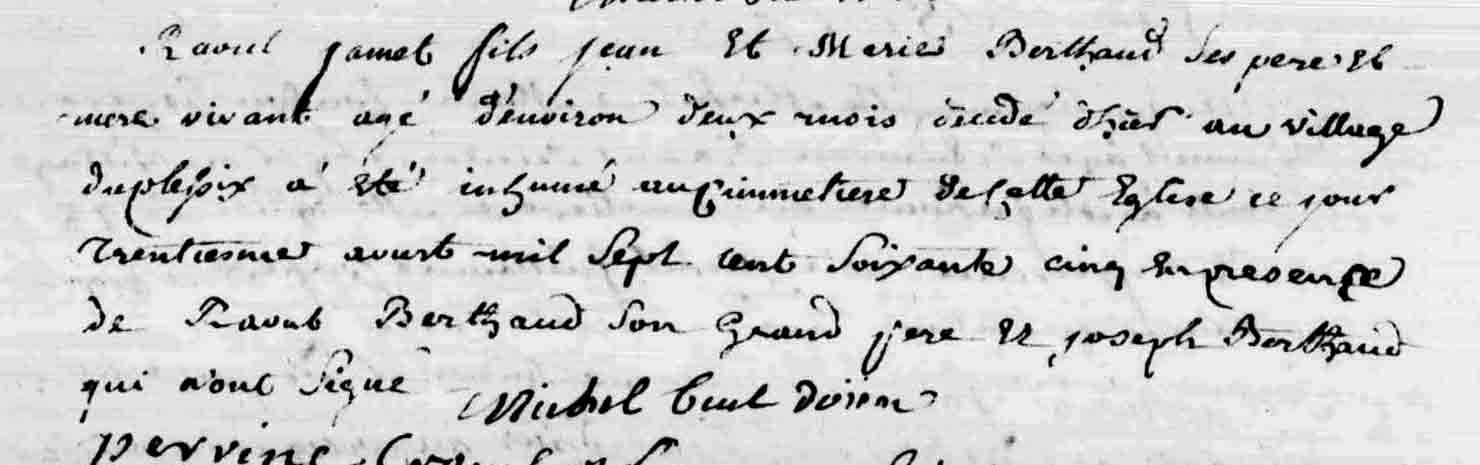 Raoul jamet fils jean et Marie Berthaud ses pere et
mere vivant agé d'environ deux mois décédé d'hier au village
duplessix a été inhumé au cimmetiere de cette Eglise ce jour
trentiesme aoust mil sept cent soixante cinq en presence
de Raoul Berthaud son grand pere et joseph Berthaud
qui n'ont signé Michel doien
perrine